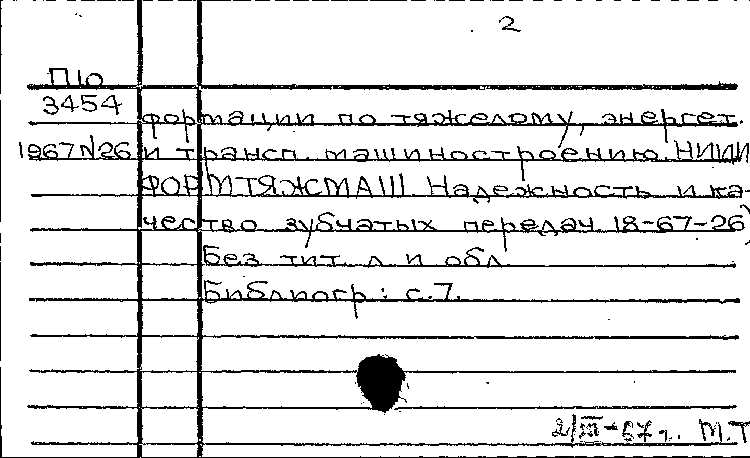 2
П10
3454 формации по тяжелому, энергет.
1967 N26 и трансп. машиностроению. НИИИН
ФОРМТЯЖМАШ. Надежность и ка-
чество зубчатых передач. 18-67-26)
Без тит. л. и обл.
Библиогр: с. 7.
2/III-67г. М.Т